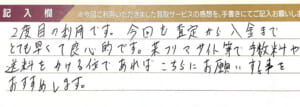 記入欄 ※今回ご利用いただきました買取サービスの感想を、手書きにてご記入お願いし
2度目の利用です。今回も査定から入金まで
とても早くて良心的です。某フリマサイト等で手数料や
送料をかける位であればこちらにお願いする事を
おすすめします。